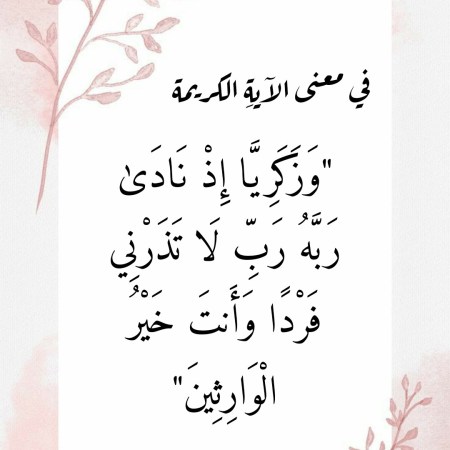 في معنى الآيةِ الكريمة
"وَزَكَرِيَّا إِذْ نَادَىٰ
رَبَّهُ رَبِّ لَا تَذَرْنِي
فَرْدًا وَأَنتَ خَيْرُ
الْوَارِثِينَ"